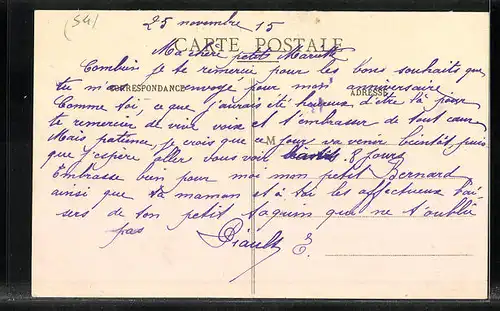 (54)
25 novembre 15
CARTE POSTALE
Ma chère petite
Combien je te remercie pour les bons souhaits que
tu m'a envoyé pour mon anniversaire
CORRESPONDANCE
ADRESSE
Comme toi, ce que j'aurais été heureux d'être là pour
te remercier de vive voix et t'embrasser de tout cœur
Mais patience, je crois que ce jour va venir bientôt puis
M
que j'espère aller vous voir 8 jours
Embrasse bien pour moi mon petit Bernard
ainsi que ta maman et à toi les affectueux bai-
sers de ton petit taquin qui ne t'oublie
pas